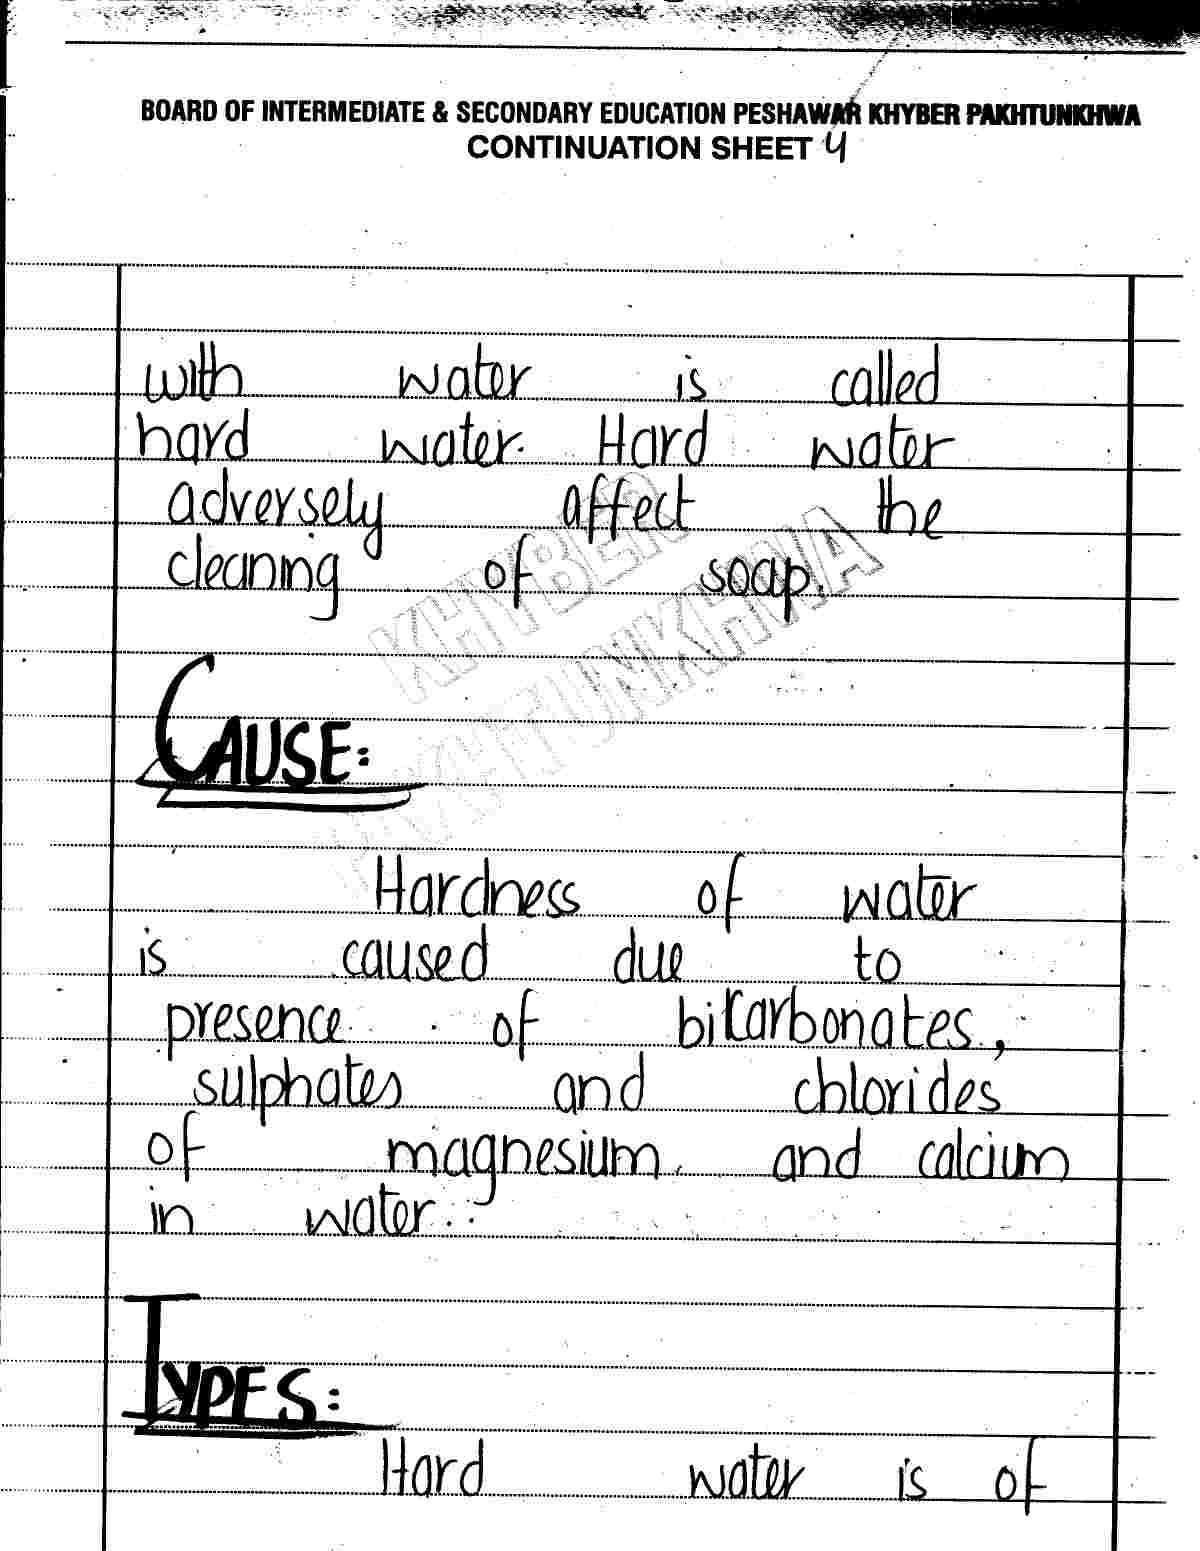 BOARD OF INTERMEDIATE & SECONDARY EDUCATION PESHAWAR KHYBER PAKHTUNKHWA
CONTINUATION SHEET 4
with water is called
hard water. Hard water
adversely affect the
cleaning of soap.
KHYBER
PAKHTUNKHWA
CAUSE:
Hardness of water
is caused due to
presence of bicarbonates,
sulphates and chlorides
of magnesium and calcium
in water.
TYPES:
Hard water is of